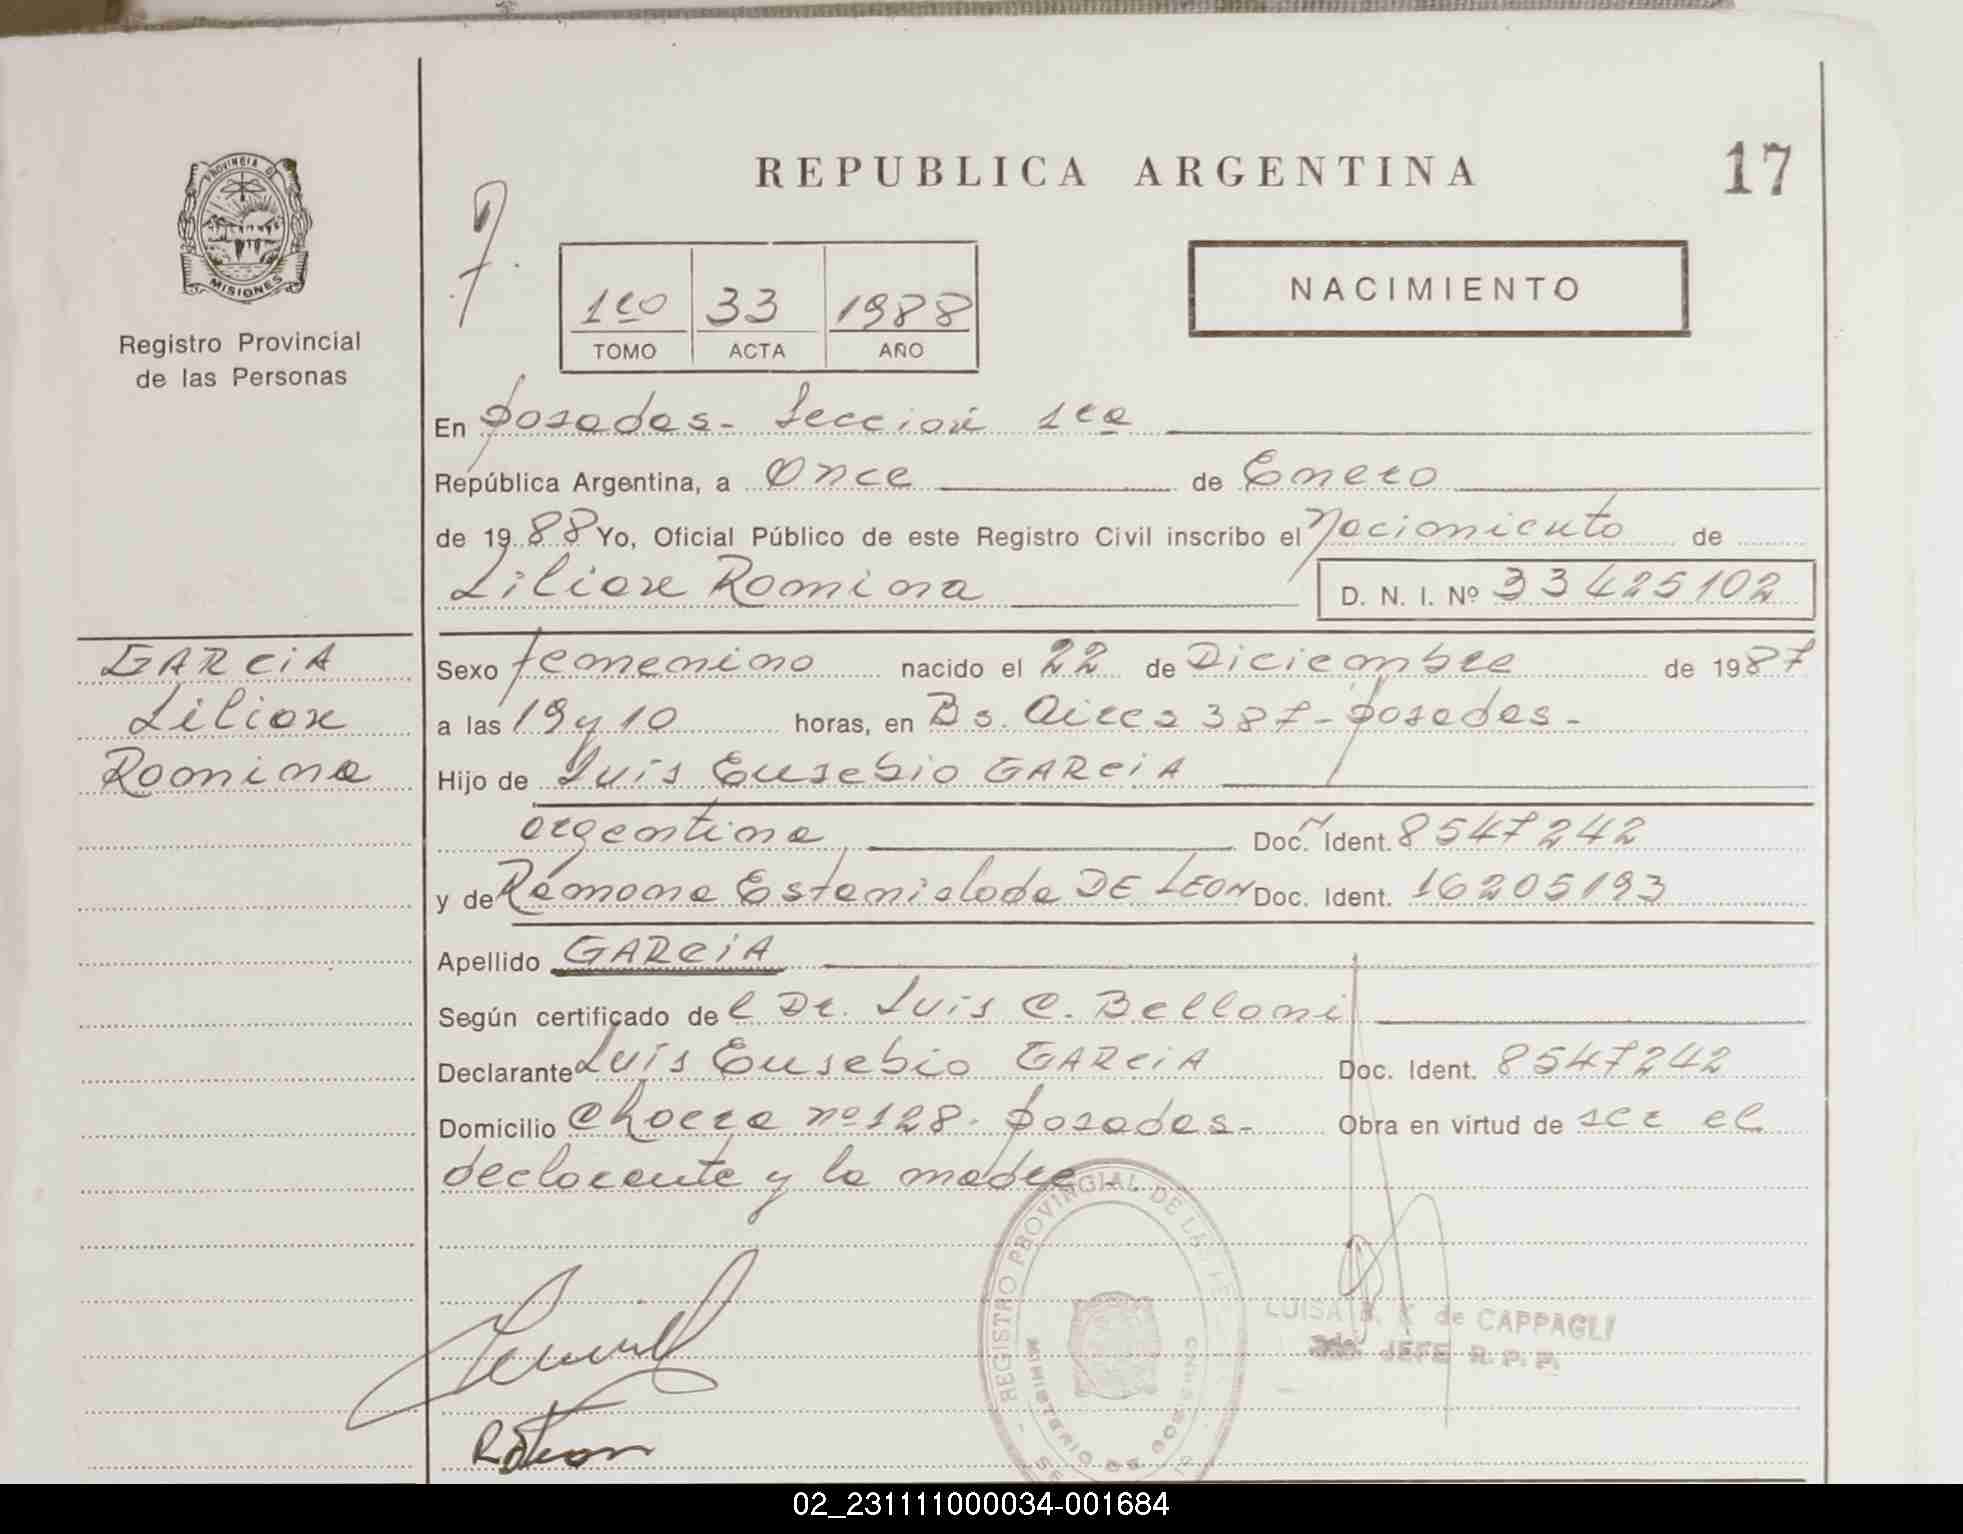 REPUBLICA ARGENTINA
17
PROVINCIA DE
MISIONES
Registro Provincial
de las Personas
1ro 33 1988
TOMO ACTA AÑO
NACIMIENTO
En Posadas- Sección 1ra
República Argentina, a Once de Enero
de 1988 Yo, Oficial Público de este Registro Civil inscribo el Nacimiento de
Lilian Romina
D. N. I. Nº 33425102
GARCIA
Lilian
Romina
Sexo femenino nacido el 22 de Diciembre de 1987
a las 19 y 10 horas, en Bs. Aires 387- Posadas-
Hijo de Luis Eusebio GARCIA
argentina Doc. Ident. 8547242
y de Ramona Estanislada DE LEON Doc. Ident. 16205193
Apellido GARCIA
Según certificado del Dr. Luis C. Belloni
Declarante Luis Eusebio GARCIA Doc. Ident. 8547242
Domicilio nº 128. Posadas- Obra en virtud de ser el
declarante y la madre.
REGISTRO PROVINCIAL DE
MINISTERIO DE GOB.
LUISA de CAPPAGLI
JEFE R. P. P.
02_231111000034-001684